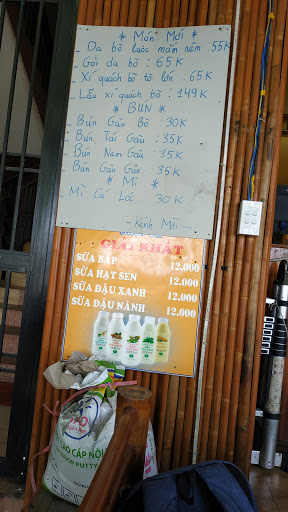 * Món Mới *
_ Da bò luộc mắm nêm : 55K
_ Gỏi da bò : 65K
_ Xí quách bò tô lớn : 65K
_ Lẩu xí quách bò : 149K
* BÚN *
_ Bún Gầu Bò : 30K
_ Bún Tái Gầu : 35K
_ Bún Nam Gầu : 35K
_ Bún Gầu Gân : 35K
* Mì *
_ Mì Cá Lóc 30K
- Kính Mời -
GIẢI KHÁT
SỮA BẮP 12.000
SỮA HẠT SEN 12.000
SỮA ĐẬU XANH 12.000
SỮA ĐẬU NÀNH 12.000
CAO CẤP NỘI
PUTTY